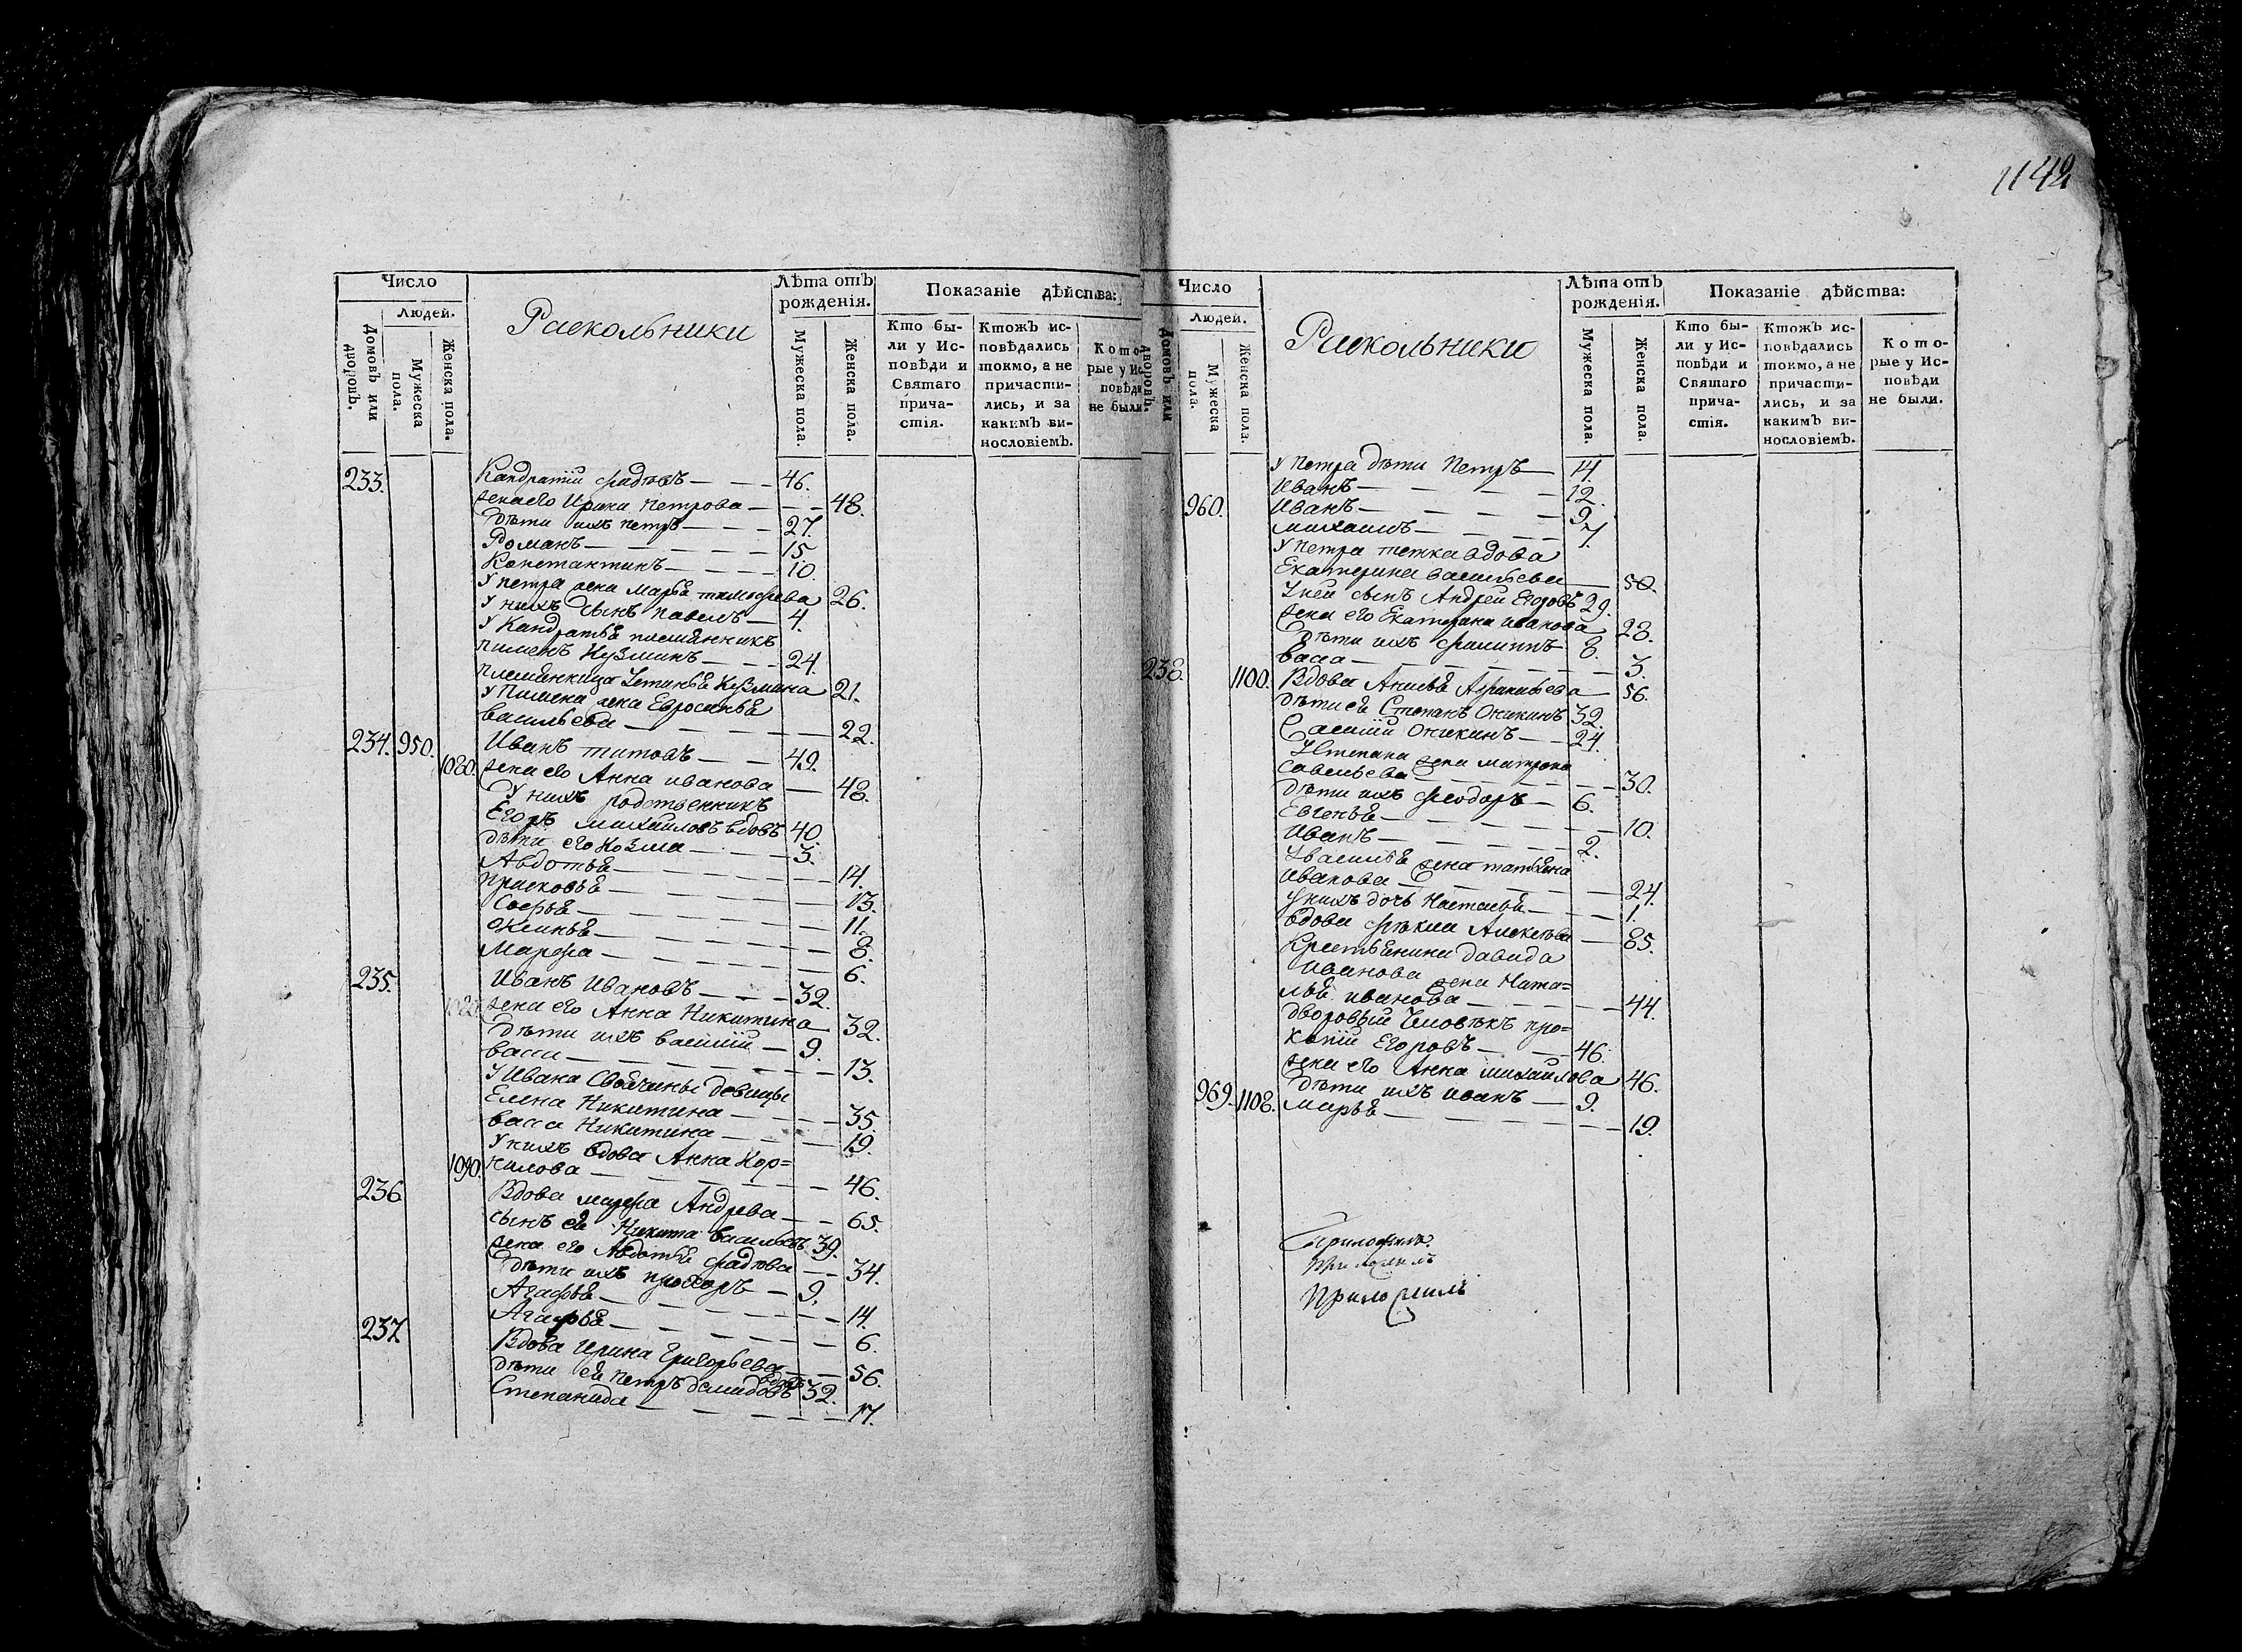 1142
Число
Людей.
Домовъ или дворовъ.
Мужеска пола.
Женска пола.
Раскольники
Лѣта отъ рожденія.
Мужеска пола.
Женска пола.
Показаніе дѣйства:
Кто были у Исповѣди и Святаго причастія.
Ктожъ исповѣдались токмо, а не причастились, и за какимъ винословіемъ.
Которые у Исповѣди не были.
233. Кандратій Фадѣевъ 46.
жена его Ирина Петрова 48.
Дѣти ихъ Петръ 27.
Романъ 15.
Константинъ 10.
У Петра жена Марья Тимофѣева 26.
У нихъ сынъ Павелъ 4.
У Кандратья племянникъ
Пименъ Кузминъ 24.
Племянница Устинья Кузмина 21.
У Пимена жена Евросинья
Васильева 22.
234. 950. Иванъ Титовъ 49.
1080. жена его Анна Иванова 48.
У нихъ родственникъ
Егоръ Михайловъ вдовъ 40.
дѣти его Козма 3.
Авдотья 14.
Прасковья 13.
Софья 11.
Ксинья 8.
Марфа 6.
235. Иванъ Ивановъ 32.
жена его Анна Никитина 32.
Дѣти ихъ Василій 9.
Васса 13.
У Ивана Своячины девицы
Елена Никитина 35.
Васса Никитина 19.
У нихъ вдова Анна Кор=
1090. нилова 46.
236. Вдова Марфа Андрева 65.
сынъ ея Никита Васильевъ 39.
жена его Авдотья Фадѣева 34.
Дѣти ихъ Прохоръ 9.
Агафья 14.
Агафья 6.
237. Вдова Ирина Григорьева 56.
Дѣти ея Петръ Демидовъ вдовъ 32.
Степанида 17.
Число
Людей.
Домовъ или дворовъ.
Мужеска пола.
Женска пола.
Раскольники
Лѣта отъ рожденія.
Мужеска пола.
Женска пола.
Показаніе дѣйства:
Кто были у Исповѣди и Святаго причастія.
Ктожъ исповѣдались токмо, а не причастились, и за какимъ винословіемъ.
Которые у Исповѣди не были.
У Петра дѣти Петръ 14.
Иванъ 12.
960. Иванъ 9.
Михаилъ 7.
У Петра тетка вдова
Екатерина Васильева 50.
У ней сынъ Андрей Егоровъ 29.
жена его Екатерина Иванова 28.
Дѣти ихъ Филиппъ 8.
Васса 3.
238. 1100. Вдова Анисья 56.
Дѣти ея Степанъ Оникинъ 32.
Василій Оникинъ 24.
У Степана жена Матрона
Савельева 30.
Дѣти ихъ Феодоръ 6.
Евгенья 10.
Иванъ 2.
У Василья жена Татьяна
Иванова 24.
У нихъ дочь Настасья 1.
Вдова Фекла Алексѣва 85.
Крестьянина Давида
Иванова жена Ната=
лья Иванова 44.
Дворовый Человѣкъ Про=
копій Егоровъ 46.
жена его Анна Михайлова 46.
Дѣти ихъ Иванъ 9.
969. 1108. Марья 19.